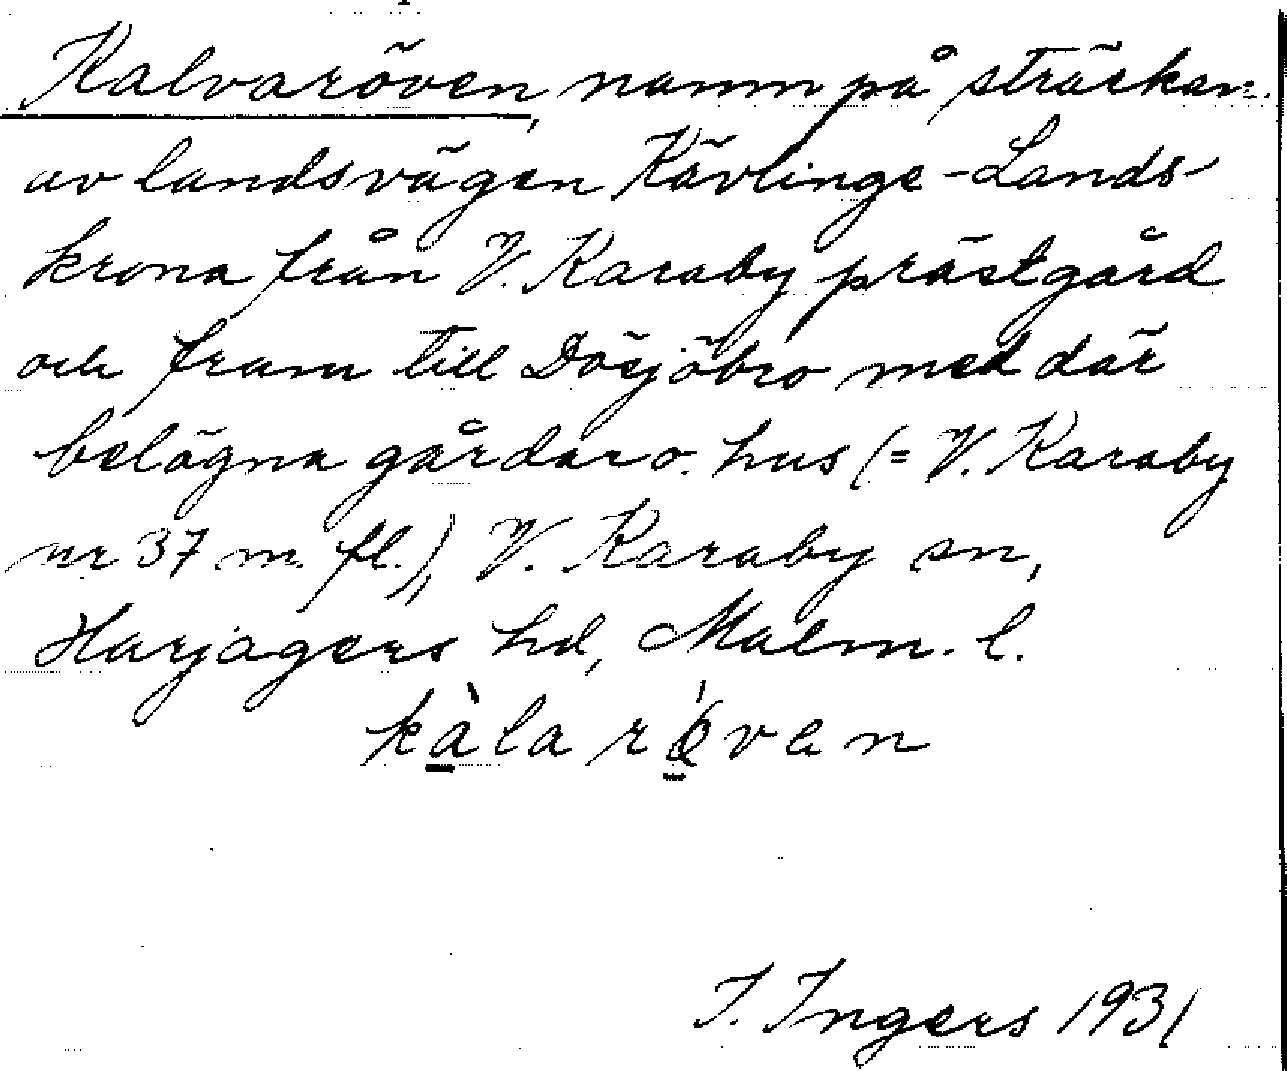 Kalvaröven, namn på sträckan
av landsvägen Kävlinge-Lands-
krona från V. Karaby prästgård
och fram till Dösjöbro med där
belägna gårdar o. hus (= V. Karaby
nr 37 m. fl.), V. Karaby sn,
Harjagers hd, Malm. l.
kàlaröven
I. Ingers 1931